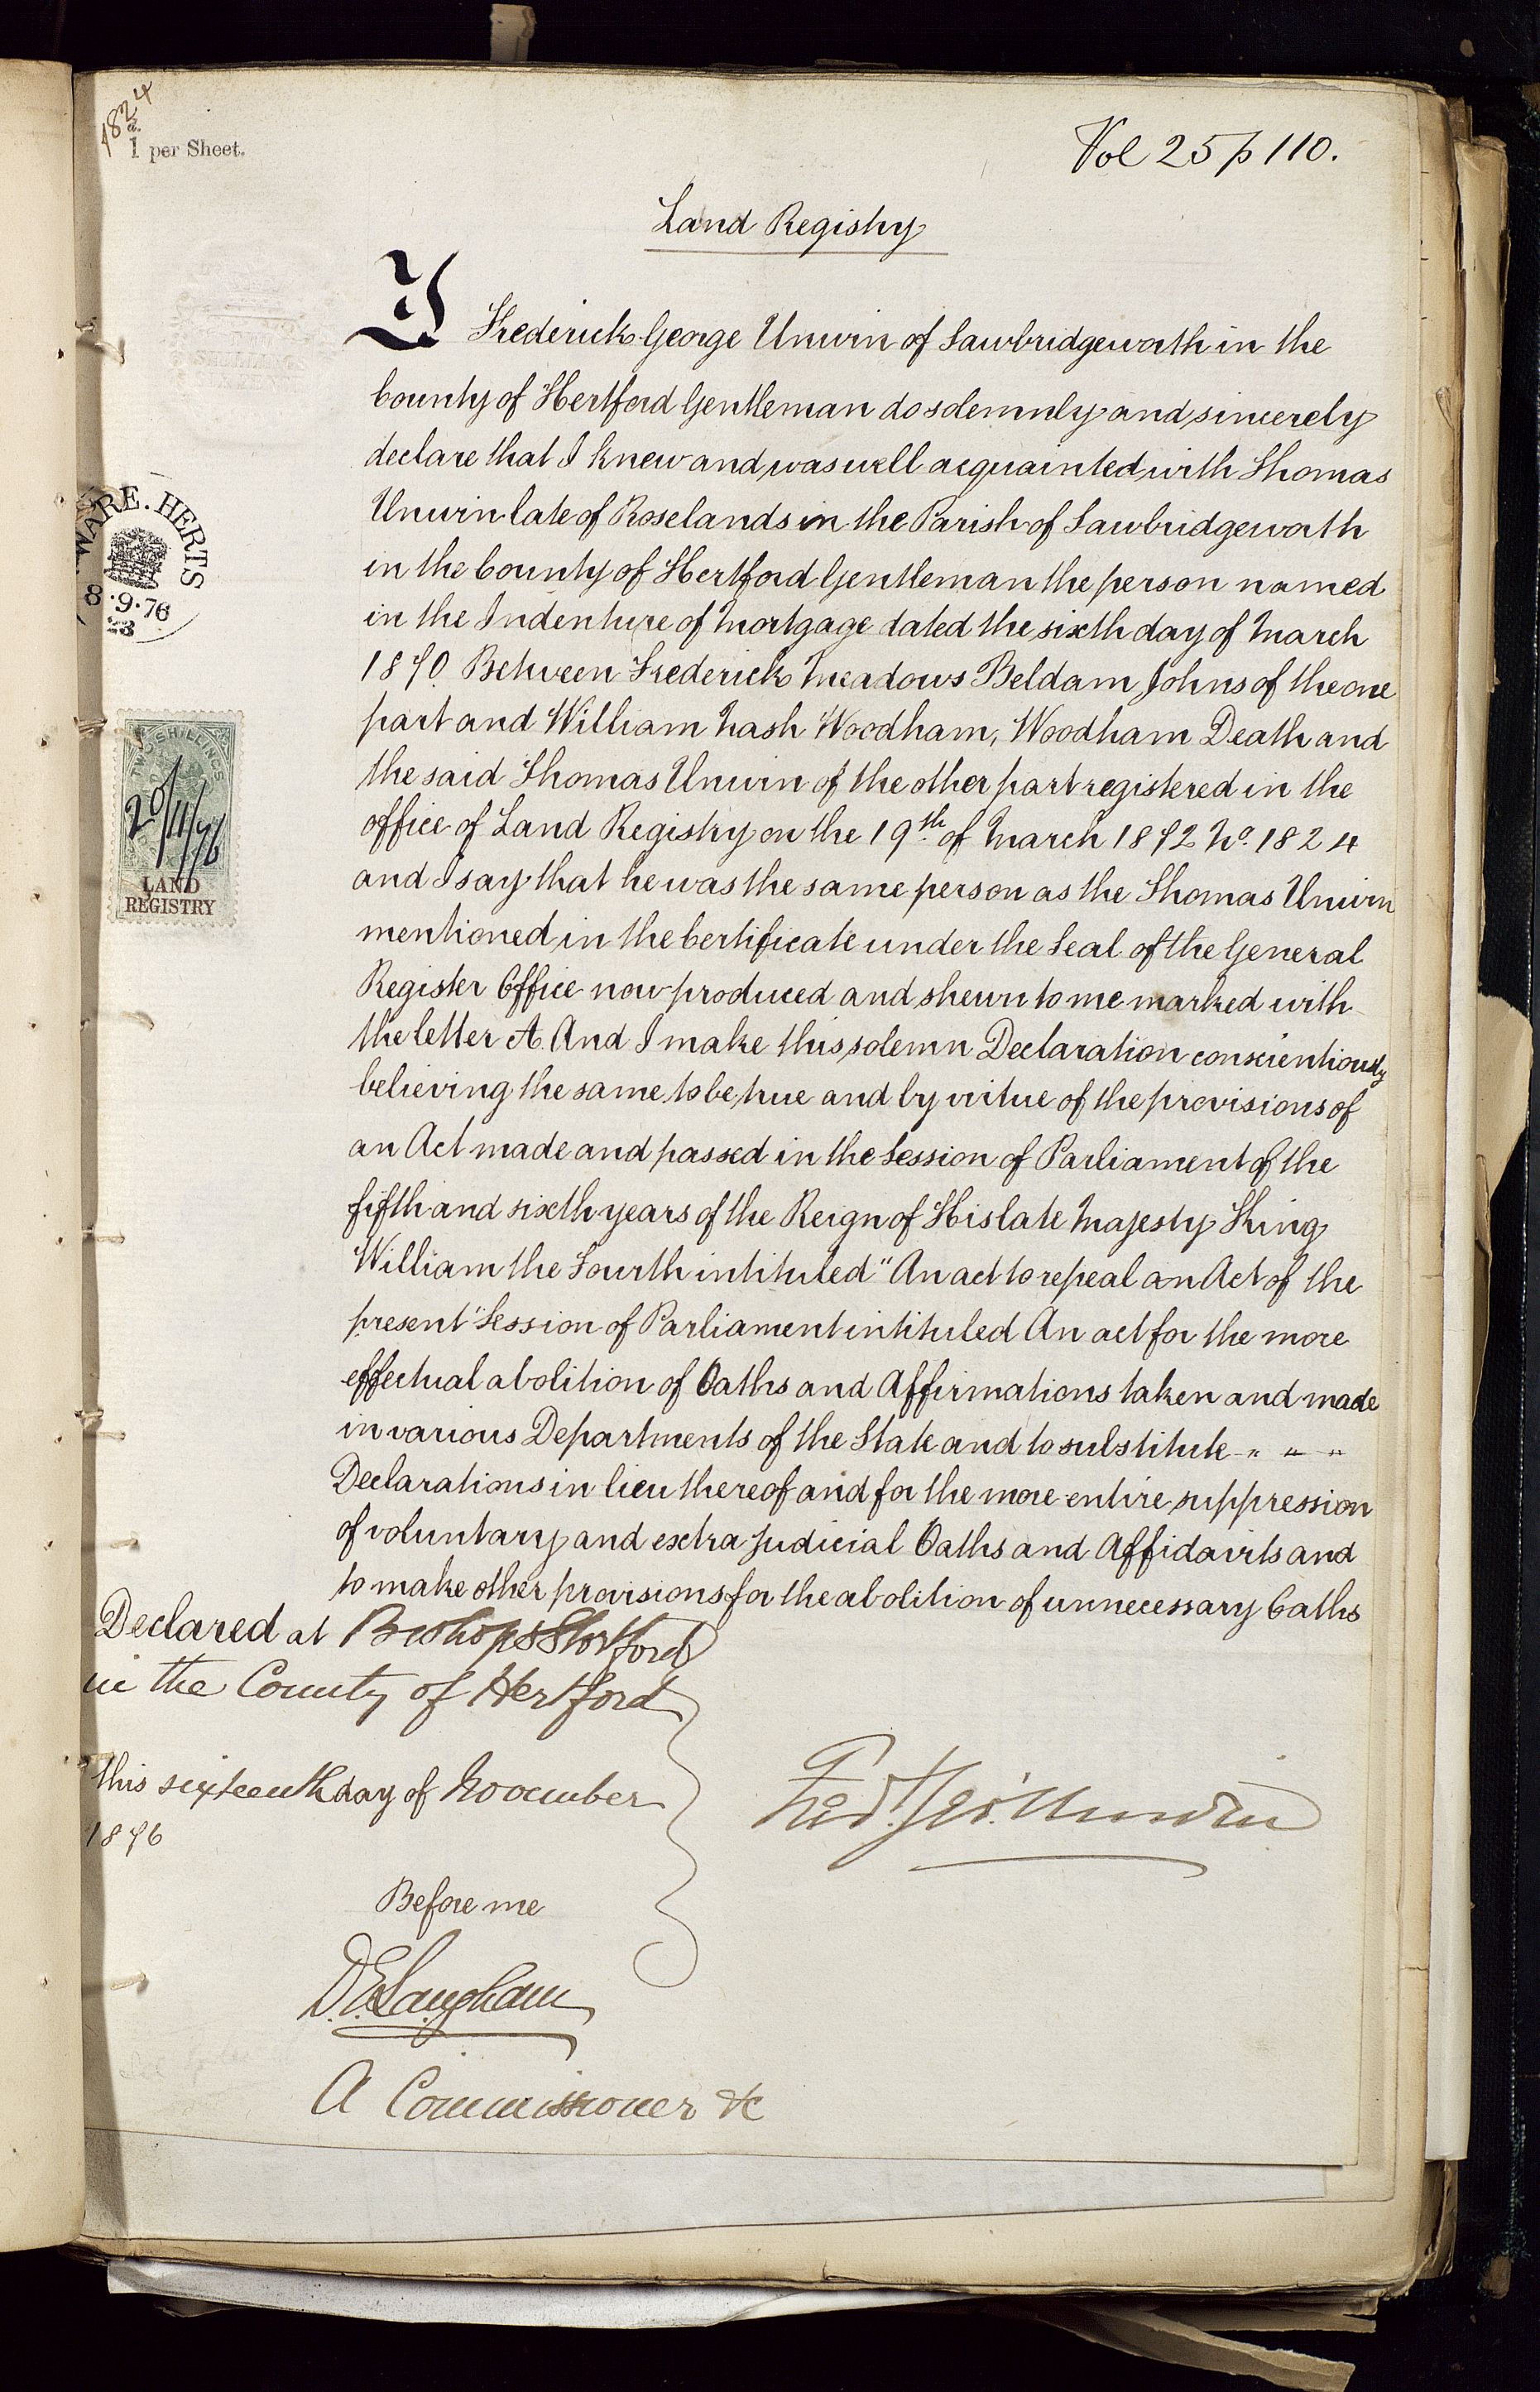 1824
a.
1 per Sheet.
Vol 25 p 110.
Land Registry
I Frederick George Unwin of Sawbridgeworth in the
County of Hertford Gentleman do solemnly and sincerely
declare that I knew and was well acquainted with Thomas
Unwin late of Roselands in the Parish of Sawbridgeworth
in the County of Hertford Gentleman the person named
in the Indenture of Mortgage dated the sixth day of March
1870 Between Frederick Meadows Beldam Johns of the one
part and William Nash Woodham, Woodham Death and
the said Thomas Unwin of the other part registered in the
office of Land Registry on the 19th of March 1872 No. 1824
and I say that he was the same person as the Thomas Unwin
mentioned in the Certificate under the Seal of the General
Register Office now produced and shewn to me marked with
the letter A. And I make this solemn Declaration conscientiously
believing the same to be true and by virtue of the provisions of
an Act made and passed in the Session of Parliament of the
fifth and sixth years of the Reign of His late Majesty King
William the Fourth intituled "An act to repeal an Act of the
present "Session of Parliament intituled An act for the more
effectual abolition of Oaths and Affirmations taken and made
in various Departments of the State and to substitute " " "
Declarations in lieu thereof and for the more entire suppression
of voluntary and extra judicial Oaths and Affidavits and
to make other provisions for the abolition of unnecessary Oaths
WARE. HERTS
8.9.76
23
TWO SHILLINGS
20/11/76
LAND
REGISTRY
Declared at Bishops Stortford
in the County of Hertford
this sixteenth day of November
1876
Fredk. Geo. Unwin
Before me
D.E. Langham
A Commissioner &c